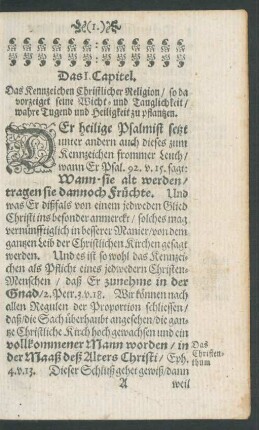 (1.)
Das I. Capitel.
Das Kennzeichen Christlicher Religion / so da
vorzeiget seine Wicht- und Tauglichkeit /
wahre Tugend und Heiligkeit zu pflantzen.
DEr heilige Psalmist setzt
unter andern auch dieses zum
Kennzeichen frommer Leuth /
wann Er Psal. 92. v. 15. sagt:
Wann sie alt werden /
tragen sie dannoch Früchte. Und
was Er dißfals von einem jedweden Glied
Christi ins besonder anmerckt / solches mag
vernünfftiglich in besserer Manier / von dem
gantzen Leib der Christlichen Kirchen gesagt
werden. Und es ist so wohl das Kennzei-
chen als Pflicht eines jedwedern Christen-
Menschen / daß Er zunehme in der
Gnad / 2. Petr. 3. v. 18. Wir können nach
allen Regulen der Proportion schliessen /
daß / die Sach überhaubt angesehen / die gan-
tze Christliche Kirch hoch gewachsen und ein
vollkommener Mann worden / in
der Maaß deß Alters Christi / Eph.
4. v. 13. Dieser Schluß gehet gewiß / dann
Das
Christen-
thum
A weil